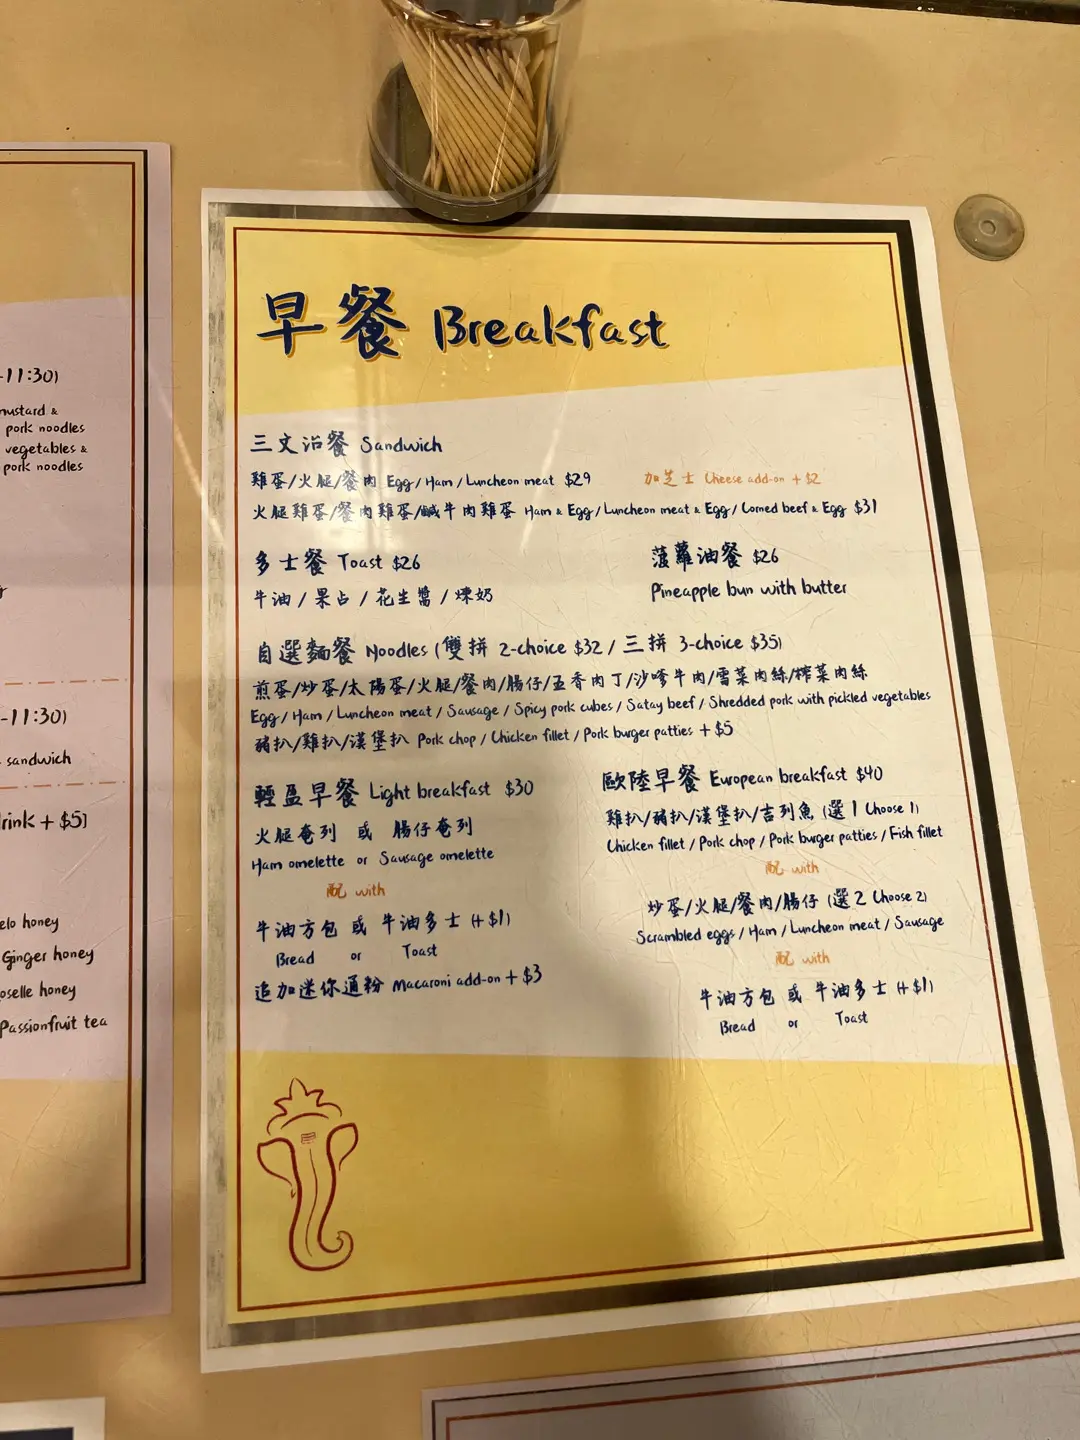 -11:30)
mustard &
pork noodles
vegetables &
pork noodles
-11:30)
sandwich
rink + $5)
elo honey
Ginger honey
oselle honey
Passionfruit tea
早餐 Breakfast
三文治餐 Sandwich
雞蛋/火腿/餐肉 Egg / Ham / Luncheon meat $29 加芝士 Cheese add-on + $2
火腿雞蛋/餐肉雞蛋/鹹牛肉雞蛋 Ham & Egg / Luncheon meat & Egg / Corned beef & Egg $31
多士餐 Toast $26
牛油 / 果占 / 花生醬 / 煉奶
菠蘿油餐 $26
Pineapple bun with butter
自選麵餐 Noodles (雙拼 2-choice $32 / 三拼 3-choice $35)
煎蛋/炒蛋/太陽蛋/火腿/餐肉/腸仔/五香肉丁/沙嗲牛肉/雪菜肉絲/榨菜肉絲
Egg / Ham / Luncheon meat / Sausage / Spicy pork cubes / Satay beef / Shredded pork with pickled vegetables
豬扒/雞扒/漢堡扒 Pork chop / Chicken fillet / Pork burger patties + $5
輕盈早餐 Light breakfast $30
火腿奄列 或 腸仔奄列
Ham omelette or Sausage omelette
配 with
牛油方包 或 牛油多士 (+$1)
Bread or Toast
追加迷你通粉 Macaroni add-on + $3
歐陸早餐 European breakfast $40
雞扒/豬扒/漢堡扒/吉列魚 (選1 Choose 1)
Chicken fillet / Pork chop / Pork burger patties / Fish fillet
配 with
炒蛋/火腿/餐肉/腸仔 (選2 Choose 2)
Scrambled eggs / Ham / Luncheon meat / Sausage
配 with
牛油方包 或 牛油多士 (+$1)
Bread or Toast